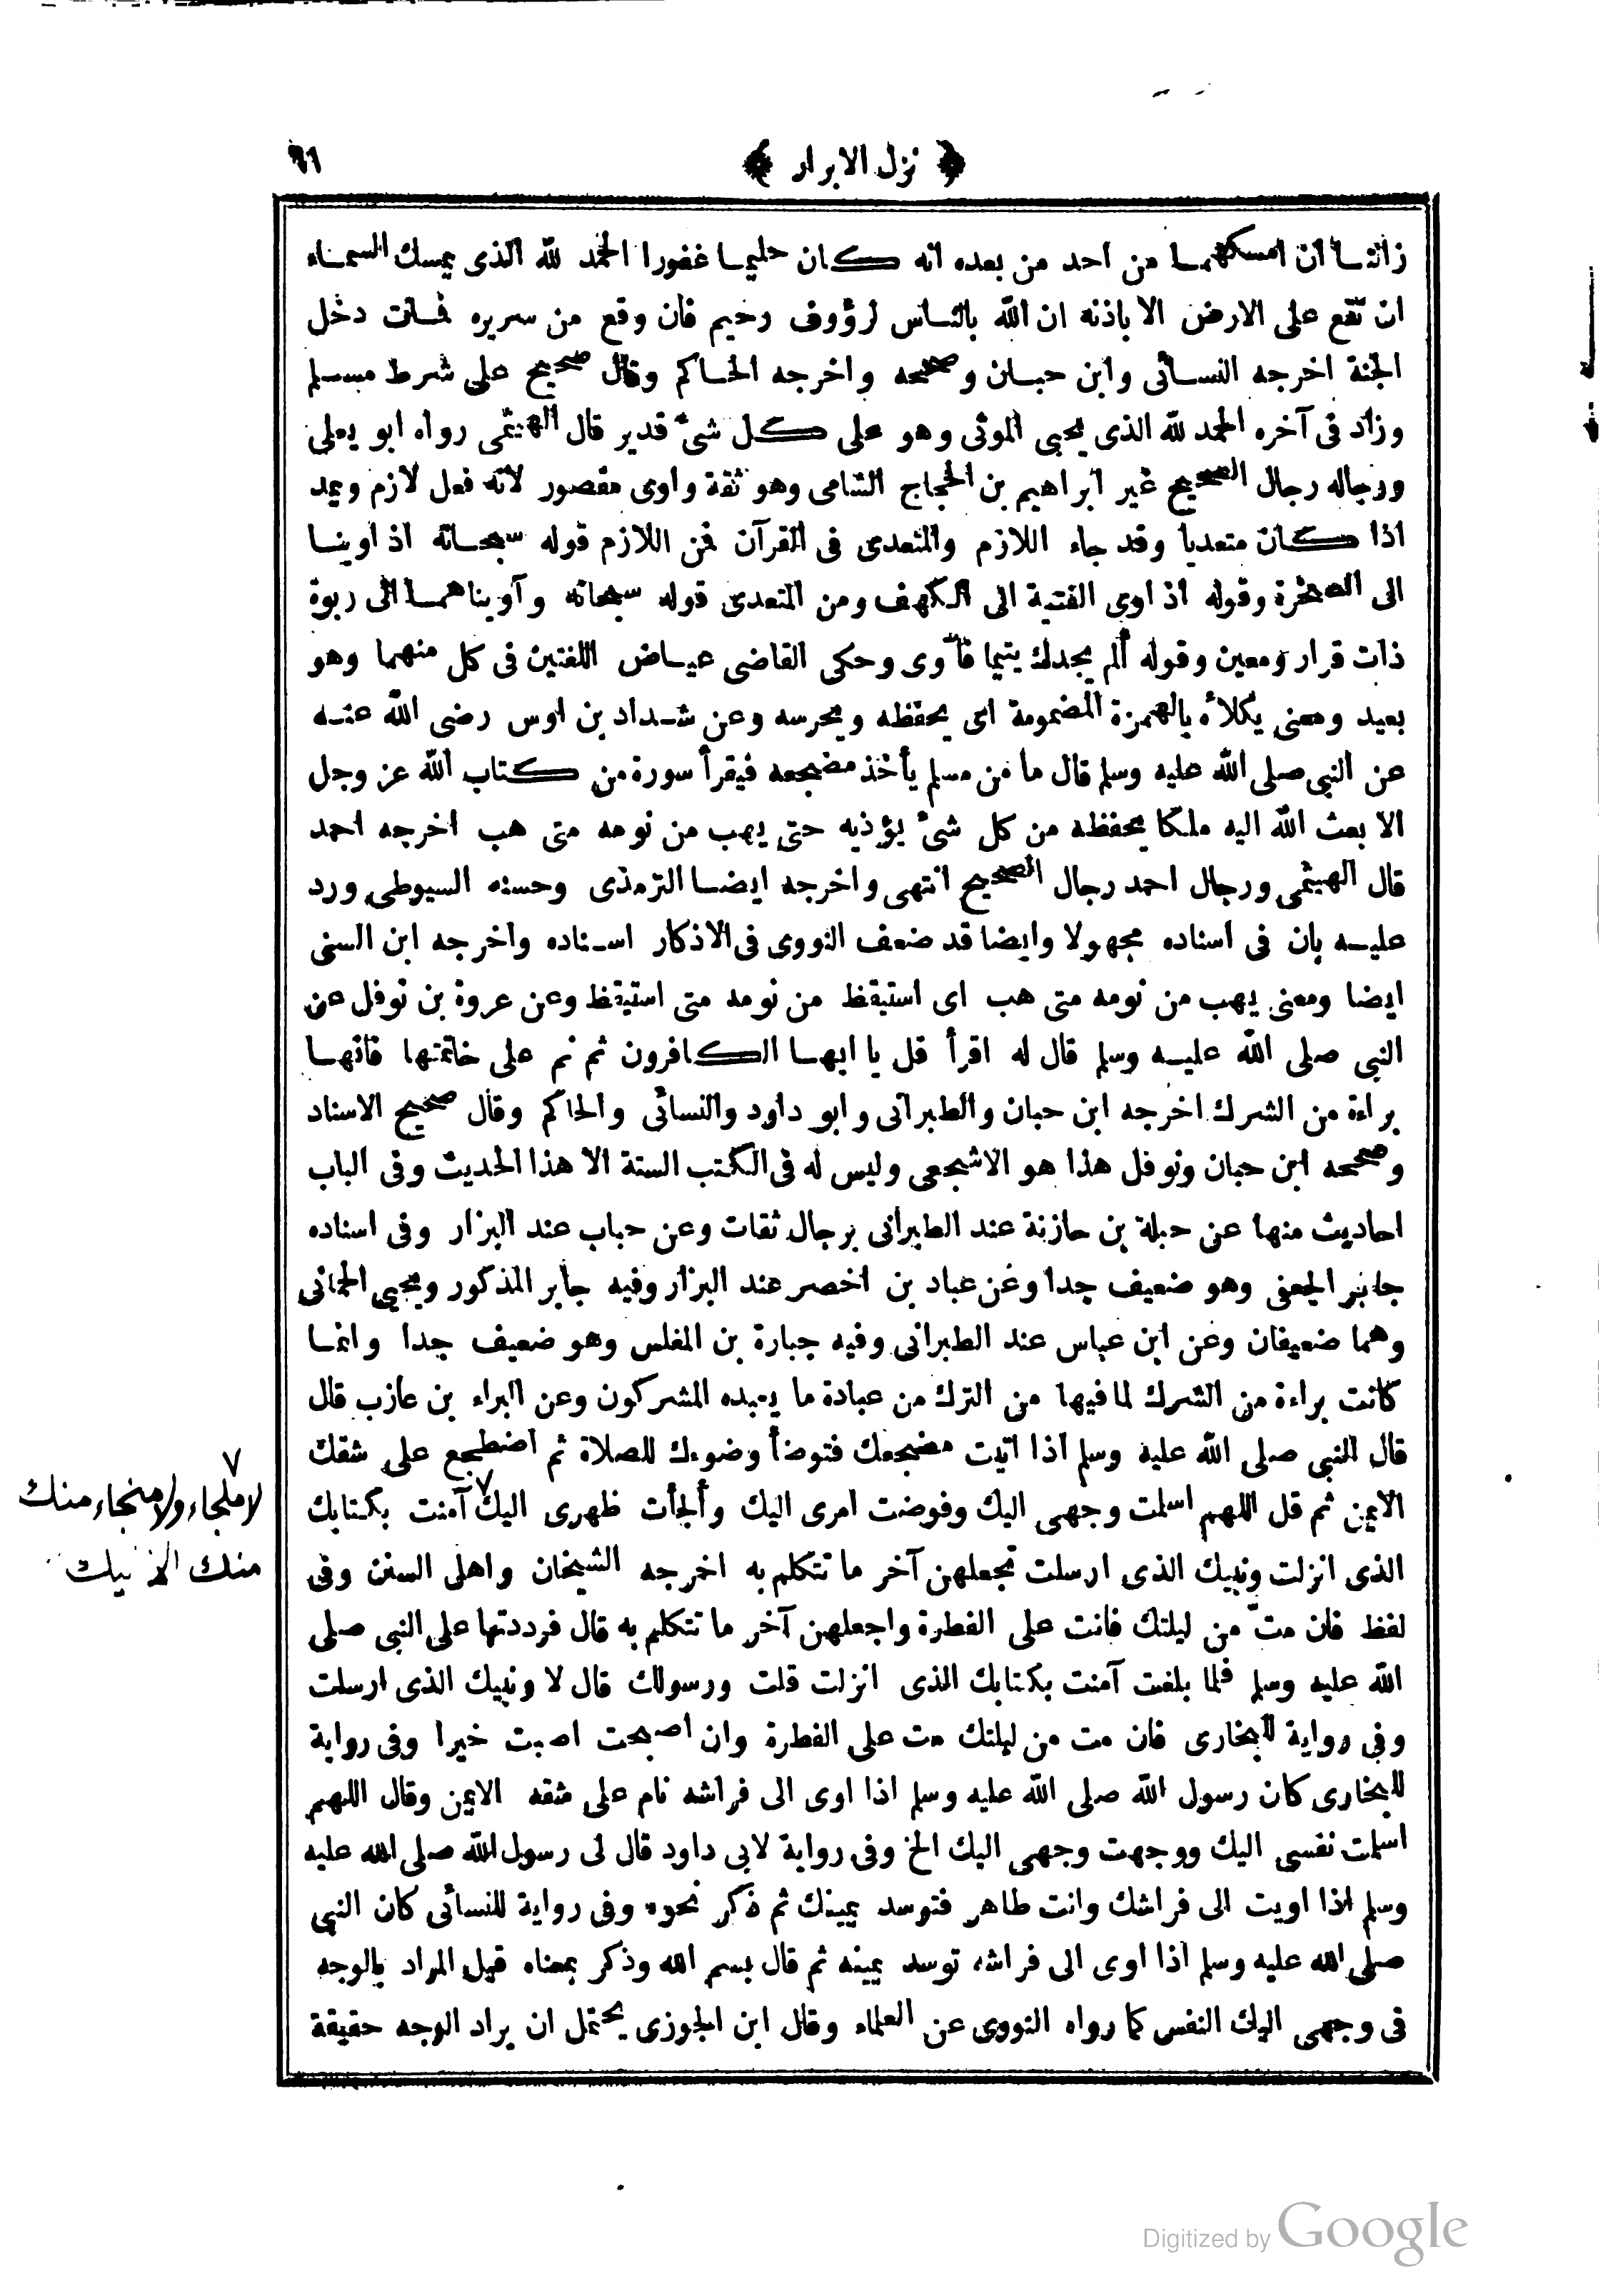 ﴿ نزل الابرار ﴾ ٦١
زالتا ان امسكهما من احد من بعده انه كان حليما غفورا الحمد لله الذى يمسك السماء
ان تقع على الارض الا باذنه ان الله بالناس لرؤوف رحيم فان وقع من سريره فمات دخل
الجنة اخرجه النسائى وابن حبان وصححه واخرجه الحاكم وقال صحيح على شرط مسلم
وزاد فى آخره الحمد لله الذى يحيى الموتى وهو على كل شئ قدير قال الهيثمى رواه ابو يعلى
ورجاله رجال الصحيح غير ابراهيم بن الحجاج الشامى وهو ثقة واوى مقصور لانه فعل لازم ويمد
اذا كان متعديا وقد جاء اللازم والمتعدى فى القرآن فمن اللازم قوله سبحانه اذ اوينا
الى الصخرة وقوله اذ اوى الفتية الى الكهف ومن المتعدى قوله سبحانه وآويناهما الى ربوة
ذات قرار ومعين وقوله ألم يجدك يتيما فآوى وحكى القاضى عياض اللغتين فى كل منهما وهو
بعيد ومعنى يكلأه بالهمزة المضمومة اى يحفظه ويحرسه وعن شداد بن اوس رضى الله عنه
عن النبى صلى الله عليه وسلم قال ما من مسلم يأخذ مضجعه فيقرأ سورة من كتاب الله عز وجل
الا بعث الله اليه ملكا يحفظه من كل شئ يؤذيه حتى يهب من نومه متى هب اخرجه احمد
قال الهيثمى ورجال احمد رجال الصحيح انتهى واخرجه ايضا الترمذى وحسنه السيوطى ورد
عليه بان فى اسناده مجهولا وايضا قد ضعف النووى فى الاذكار اسناده واخرجه ابن السنى
ايضا ومعنى يهب من نومه متى هب اى استيقظ من نومه متى استيقظ وعن عروة بن نوفل عن
النبى صلى الله عليه وسلم قال له اقرأ قل يا ايها الكافرون ثم نم على خاتمتها فانها
براءة من الشرك اخرجه ابن حبان والطبرانى وابو داود والنسائى والحاكم وقال صحيح الاسناد
وصححه ابن حبان ونوفل هذا هو الاشجعى وليس له فى الكتب الستة الا هذا الحديث وفى الباب
احاديث منها عن حبلة بن حازنة عند الطبرانى برجال ثقات وعن حباب عند البزار وفى اسناده
جابر الجعفى وهو ضعيف جدا وعن عباد بن اخصر عند البزار وفيه جابر المذكور ويحيى الحمانى
وهما ضعيفان وعن ابن عباس عند الطبرانى وفيه جبارة بن المغلس وهو ضعيف جدا وانما
كانت براءة من الشرك لما فيها من الترك من عبادة ما يعبده المشركون وعن البراء بن عازب قال
قال النبى صلى الله عليه وسلم اذا اتيت مضجعك فتوضأ وضوءك للصلاة ثم اضطجع على شقك
الايمن ثم قل اللهم اسلمت وجهى اليك وفوضت امرى اليك وألجأت ظهرى اليك ٧ آمنت بكتابك
الذى انزلت ونبيك الذى ارسلت تجعلهن آخر ما تتكلم به اخرجه الشيخان واهل السنن وفى
لفظ فان متّ من ليلتك فانت على الفطرة واجعلهن آخر ما تتكلم به قال فرددتها على النبى صلى
الله عليه وسلم فلما بلغت آمنت بكتابك الذى انزلت قلت ورسولك قال لا ونبيك الذى ارسلت
وفى رواية للبخارى فان مت من ليلتك مت على الفطرة وان اصبحت اصبت خيرا وفى رواية
للبخارى كان رسول الله صلى الله عليه وسلم اذا اوى الى فراشه نام على شقه الايمن وقال اللهم
اسلمت نفسى اليك ووجهت وجهى اليك الخ وفى رواية لابى داود قال لى رسول الله صلى الله عليه
وسلم اذا اويت الى فراشك وانت طاهر فتوسد يمينك ثم ذكر نحوه وفى رواية للنسائى كان النبى
صلى الله عليه وسلم اذا اوى الى فراشه توسد يمينه ثم قال بسم الله وذكر بمعناه قيل المراد بالوجه
فى وجهى اليك النفس كما رواه النووى عن العلماء وقال ابن الجوزى يحتمل ان يراد الوجه حقيقة
٧
لا ملجاء ولا منجاء منك
منك الا اليك
Digitized by Google